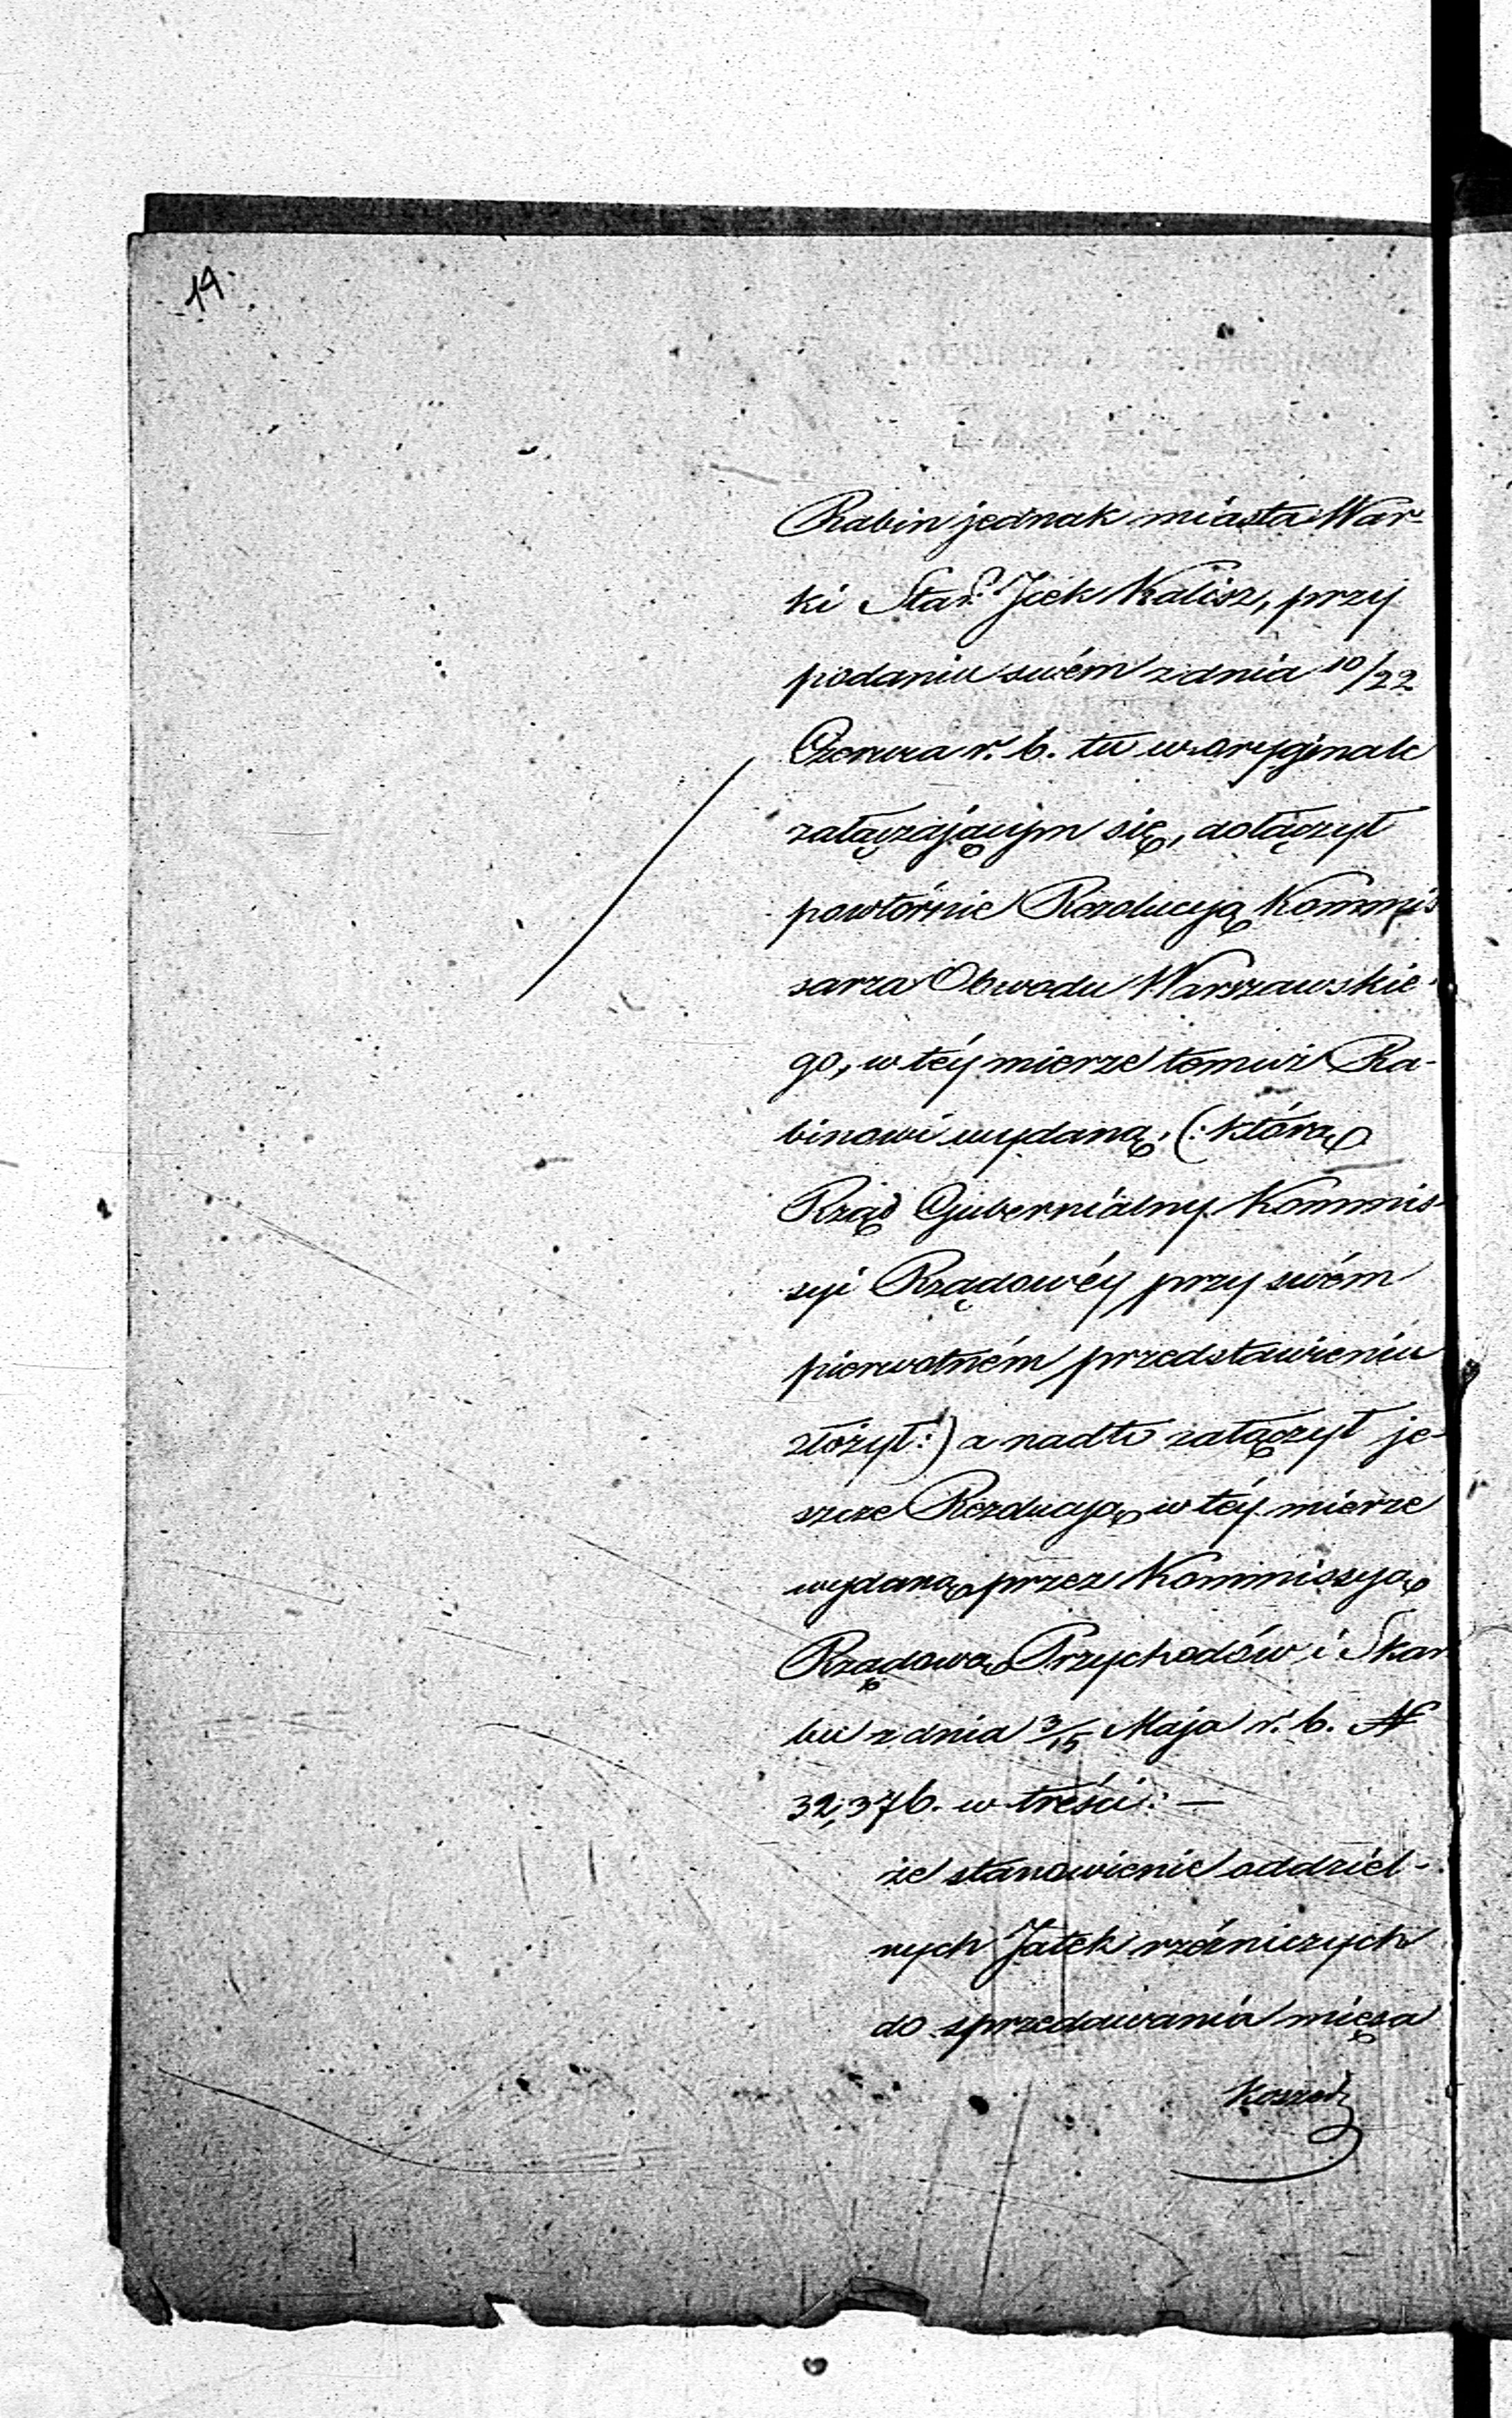 14.
Rabin jednak miasta War-
ki Star. Jcek Kalisz, przy
podaniu swém z dnia 10/22
Czerwca r. b. tu w oryginale
załączającym się, dołączył
powtórnie Rezolucyą Kommis
sarza Obwodu Warszawskie-
go, w téy mierze temuż Ra-
binowi wydaną, (: którą
Rząd Gubernialny Kommis-
syi Rządowéy przy swém
pierwotném przedstawieniu
złożył :) a nadto załączył je-
szcze Rezolucyą w téy mierze
wydaną przez Kommissyą
Rządową Przychodów i Skar
bu z dnia 3/15 Maja r. b. N
32,376. w treści: —
że stanowienie oddziel-
nych Jatek rzeźniczych
do sprzedawania mięsa
Koszer